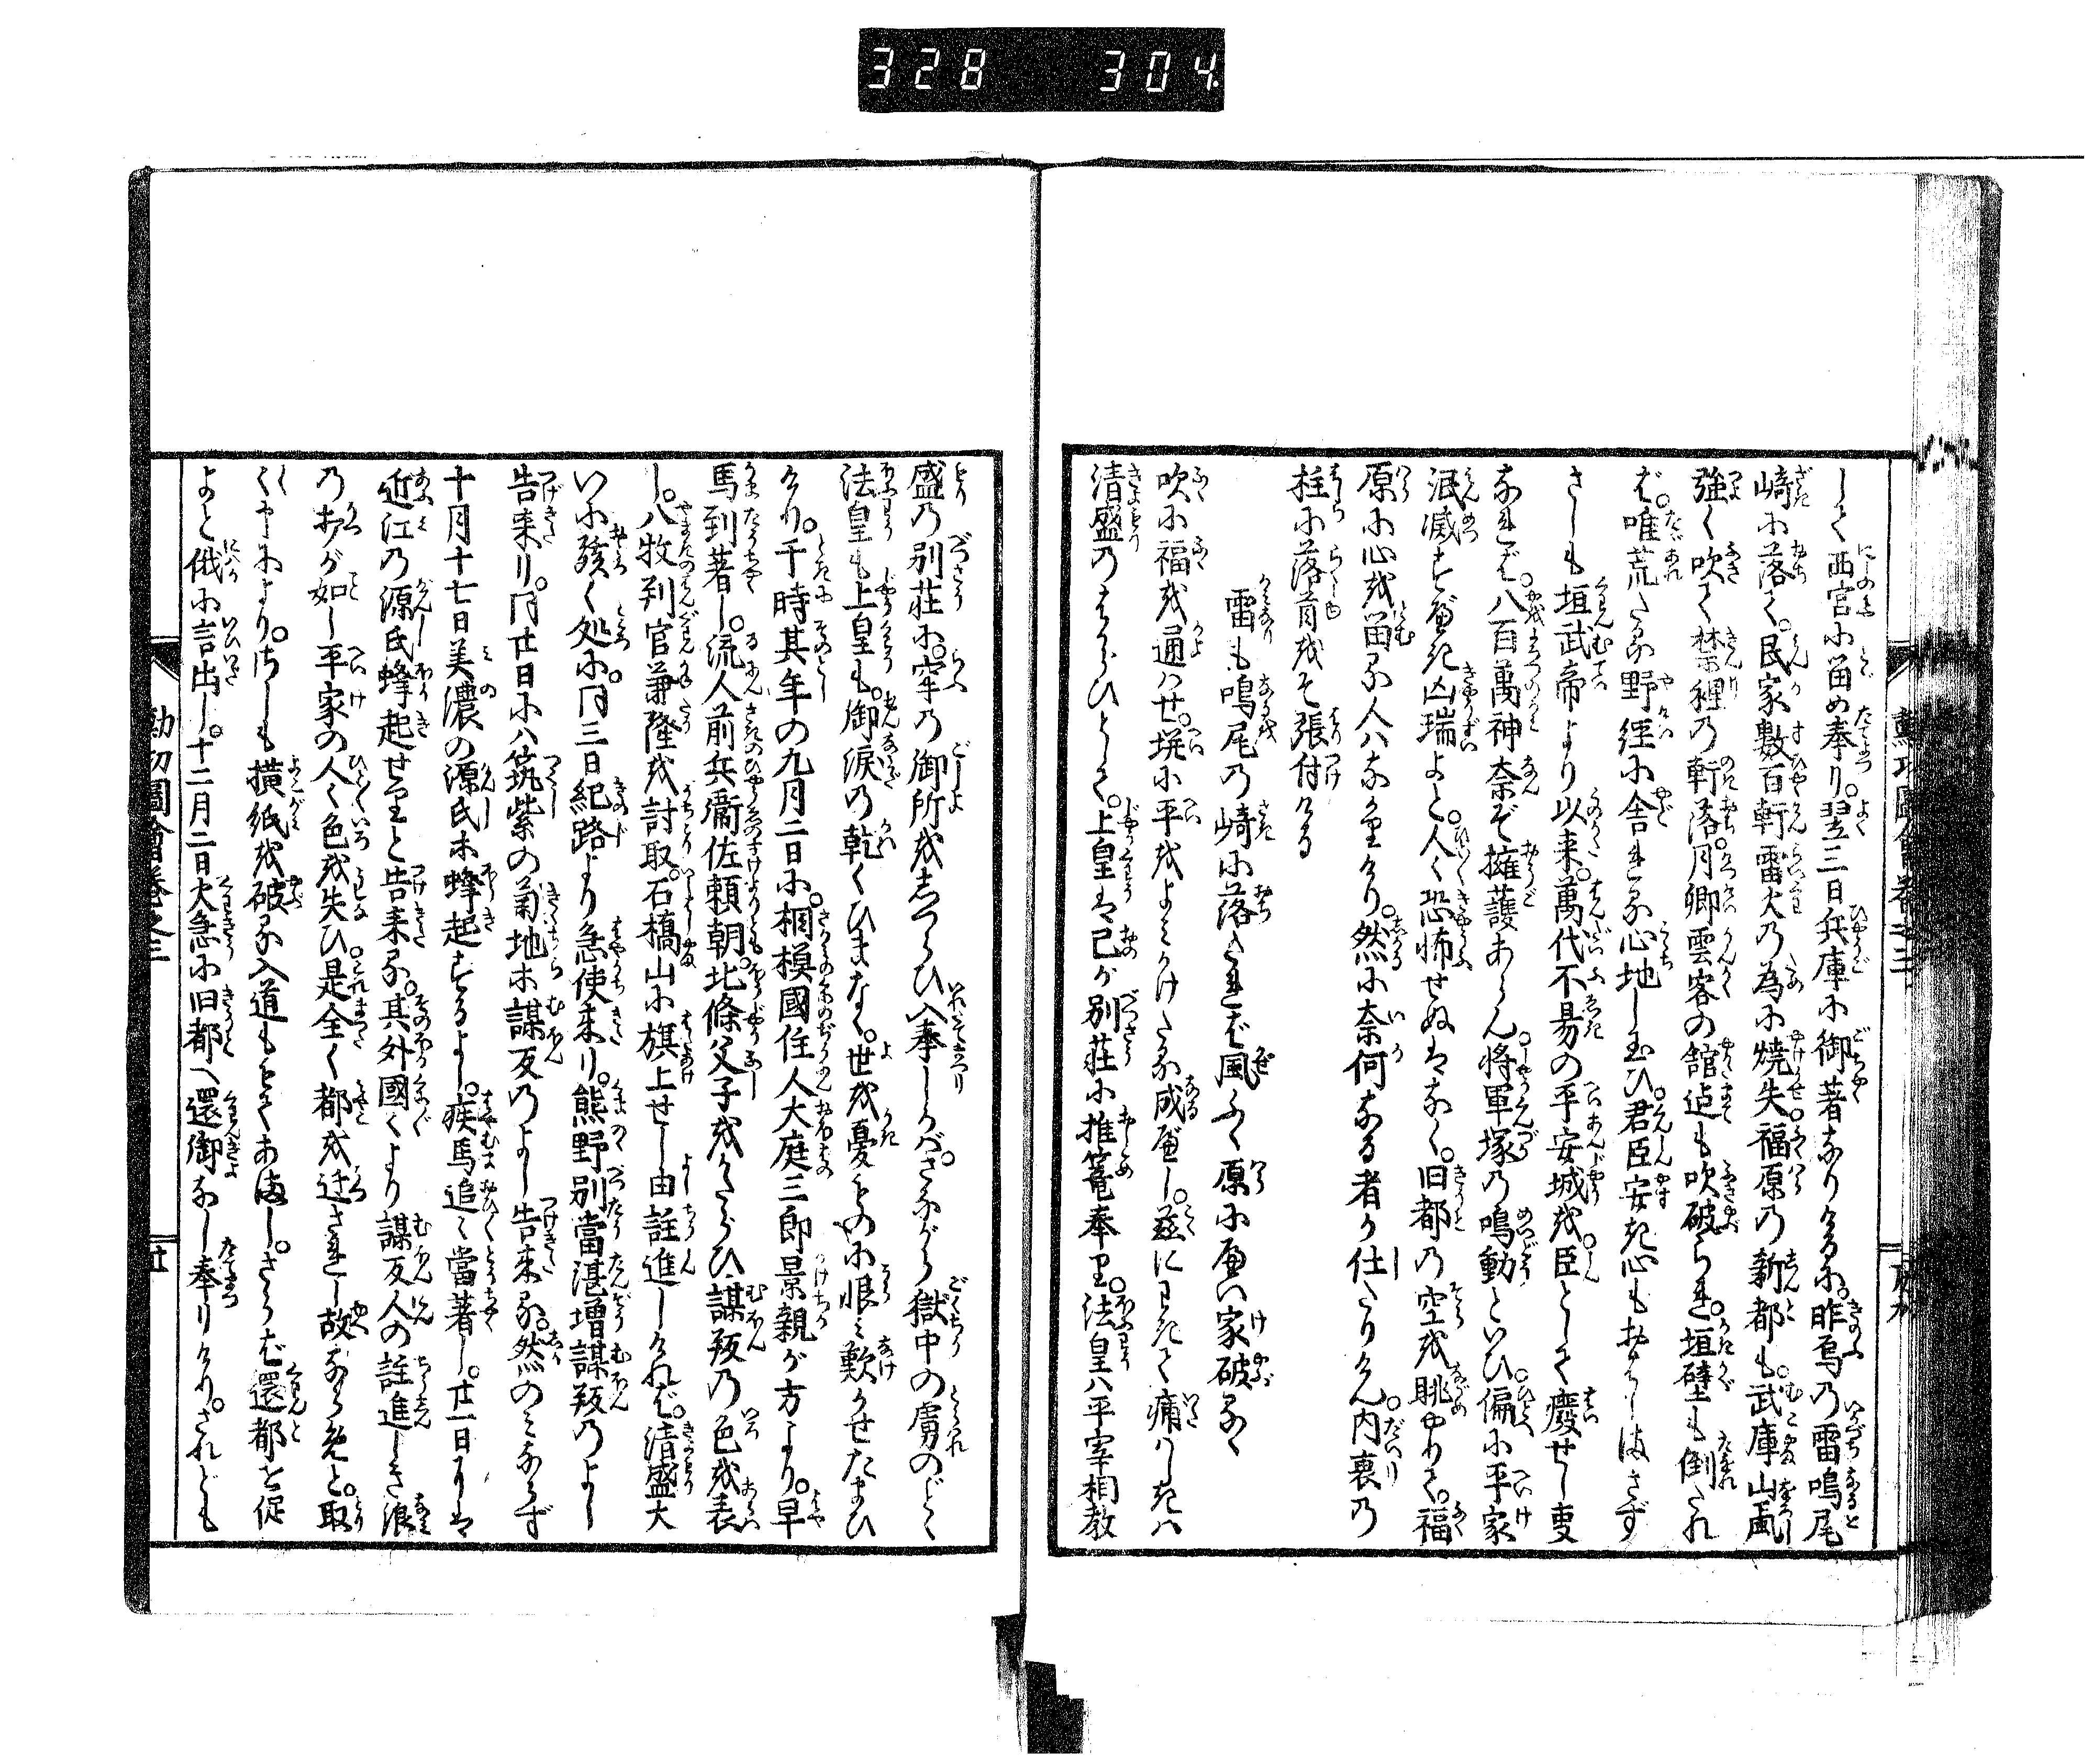 328 304
勲功圖會巻之三
して西宮に留め奉り。翌三日兵庫に御著なりけるに。昨烏の雷鳴尾
﨑に落て。民家數百軒雷火の為に焼失。福原の新都も。武庫山風
強く吹て禁裡の軒落。月卿雲客の舘迠も吹破られ。垣壁も倒れ
ば。唯荒たる野経に舎れる心地し玉ひ。君臣安き心もおはしまさず
さしも垣武帝より以来。萬代不易の平安城を。臣として廢せし叓
なれば。八百萬神奈ぞ擁護あらん。将軍塚の鳴動といひ。偏に平家
泯滅すべき凶瑞よと。人〻恐怖せぬはなく。旧都の空を眺やりて。福
原に心を留る人はなかりけり。然に奈何なる者か仕たりけん。内裏の
柱に落首をそ張付ける
雷も鳴尾の﨑に落たれば風ふく原にのべい家破るゝ
吹に福を通はせ。塀に平をよみかけたる成べし。茲にわきて痛はしきは
清盛のはからひとして。上皇は己が別荘に推篭奉り。法皇は平宰相教
盛の別荘に。牢の御所をしつらひ入奉りしかば。さながら獄中の虜のごとく
法皇も上皇も。御涙の乾くひまなく。世を憂ものに恨み歎かせたまひ
けり。于時其年の九月二日に。相模國住人大庭三郎景親が方より。早
馬到著し。流人前兵衞佐頼朝。北條父子をかたらひ謀叛の色を表
し。八牧判官兼隆を討取。石橋山に旗上せし由註進しければ。清盛大
いに駭く処に。同三日紀路より急使来り。熊野別當湛増謀叛のよし
告来り。同廿日には筑紫の菊地ホ謀反のよし告来る。然のみならず
十月十七日美濃の源氏ホ蜂起するよし。疾馬追〻當著し。廿一日には
近江の源氏蜂起せりと告来る。其外國〻より謀反人の註進しき浪
の打が如し平家の人〻色を失ひ。是全く都を迁されし故ならめと。取
〻申すにより。さしも横紙を破る入道ももてあまし。さらば還都を促
よと俄に言出し。十二月二日火急に旧都へ還御なし奉りけり。されども
勲功圖會巻之三
廿